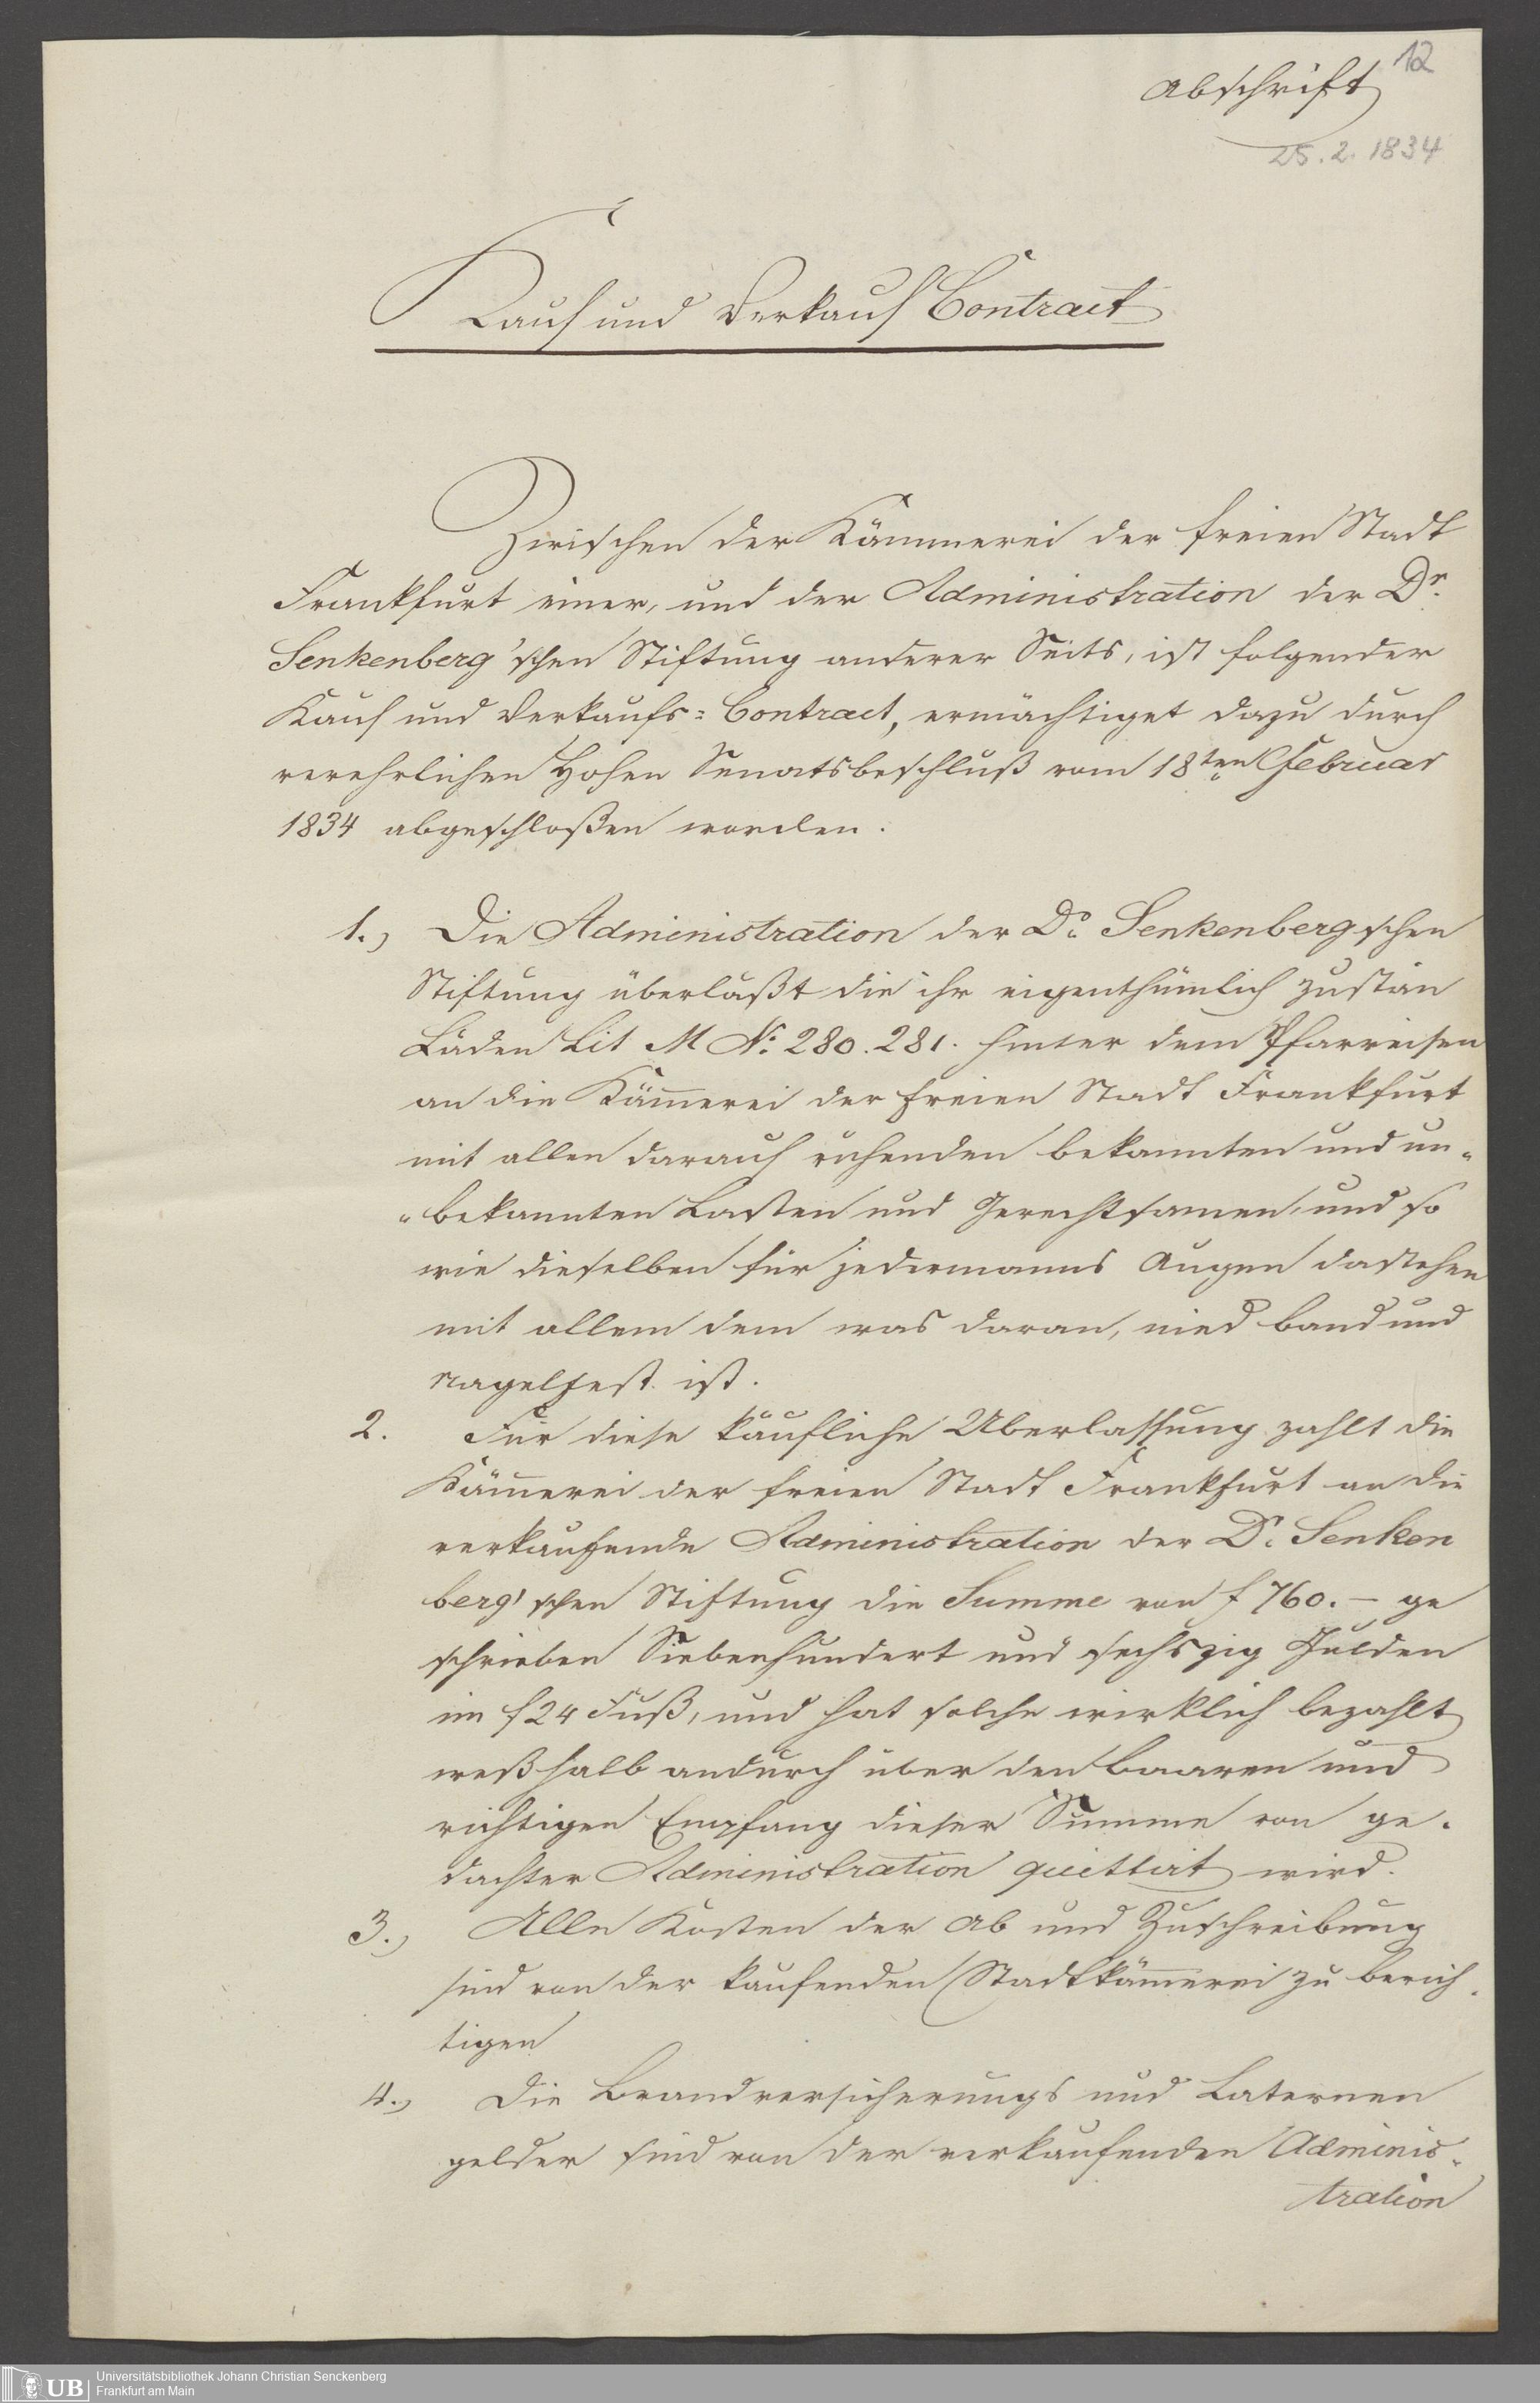 12
Abschrift
25.2.1834
Kauf und Verkauf Contract
Zwischen der Kämmerei der freien Stadt
Frankfurt einer, und der Administration der Dr.
Senkenberg'schen Stiftung anderer Seits, ist folgender
Kauf und Verkaufs=Contract, ermächtiget dazu durch
verehrlichen Hohen Senatsbeschluß vom 18ten Februar
1834 abgeschloßen worden.
1.) Die Administration der Dr. Senkenbergschen
Stiftung überläßt die ihr eigenthümlich zustän
Läden Lit M No. 280. 281. hinter dem Pfarreisen
an die Kämerei der freien Stadt Frankfurt
mit allen darauf ruhenden bekannten und un-
-bekannten Lasten und Gerechtsamen, und so
wie dieselben für jedermanns Augen dastehen
mit allem dem was daran, nied band und
nagelfest ist.
2. Für diese käufliche Überlassung zahlt die
Kämerei der freien Stadt Frankfurt an die
verkaufende Administration der Dr. Senken
berg'schen Stiftung die Summe von f 760. – ge
schrieben Siebenhundert und sechszig Gulden
im f 24 Fuß, und hat solche wirklich bezahlt
weßhalb andurch über den baaren und
richtigen Empfang dieser Summe von ge-
dachter Administration quittirt wird.
3.) Alle Kosten der Ab und Zuschreibung
sind von der kaufenden Stadtkämerei zu berich-
tigen
4.) Die Brandversicherungs und Laternen
gelder sind von der verkaufenden Adminis-
tration
UB
Universitätsbibliothek Johann Christian Senckenberg
Frankfurt am Main